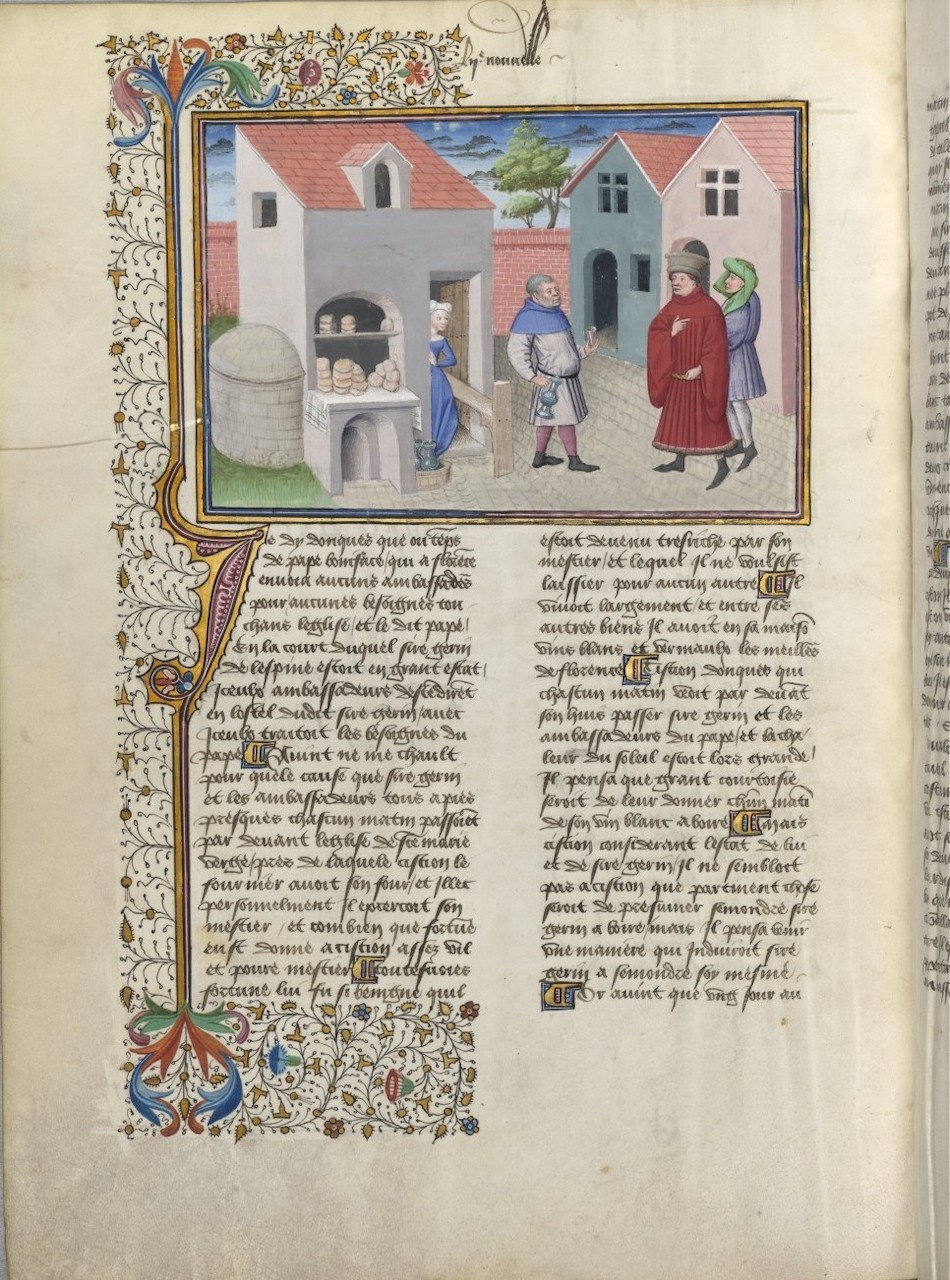 ije nouvelle
Je dy donques que ou tẽps
de pape boniface / qui a florẽce
envoia aucuns ambassades
pour aucunes besoignes tou
chans leglise / et le dit pape /
En la court duquel sire gerin
de lespine estoit en grant estat /
Iceulx ambassadeurs descẽdirẽt
en lostel dudit sire gerin / avec
Iceulx traitoit les besoignes du
pape Avint ne me chault
pour quele cause que sire gerin
et les ambassadeurs tous a pies
presques chascun matin passoiẽt
par devant leglise de sainte marie
verge / pres de laquele cistion le
fournier avoit son four / et illec
personnelment Il excercoit son
mestier / et combien que fortũe
eust donne a cistion asses vil
et povre mestier toutesvoies
fortune lui fu si benigne quil
estoit devenu tresriche par son
mestier / et lequel Il ne voulsist
laissier pour aucun autre Il
vivoit largement / et entre ses
autres biens Il avoit en sa maisõ
vins blans et vermaulx les meilleͬs
de florence Cistion donques qui
chascun matin veoit par devãt
son huis passer sire gerin et les
ambassadeurs du pape / et la cha
leur du soleil estoit lors grande /
Il pensa que grant courtoisie
seroit de leur donner chũn matĩ
de son vin blanc a boire Mais
cistion considerant lestat de lui
et de sire gerin / Il ne sembloit
pas a cistion que
seroit de presumer semondre sire
gerin a boire / mais Il pensa tenir
une maniere qui Induiroit sire
gerin a semondre soy mesme
Or avint que ung jour au